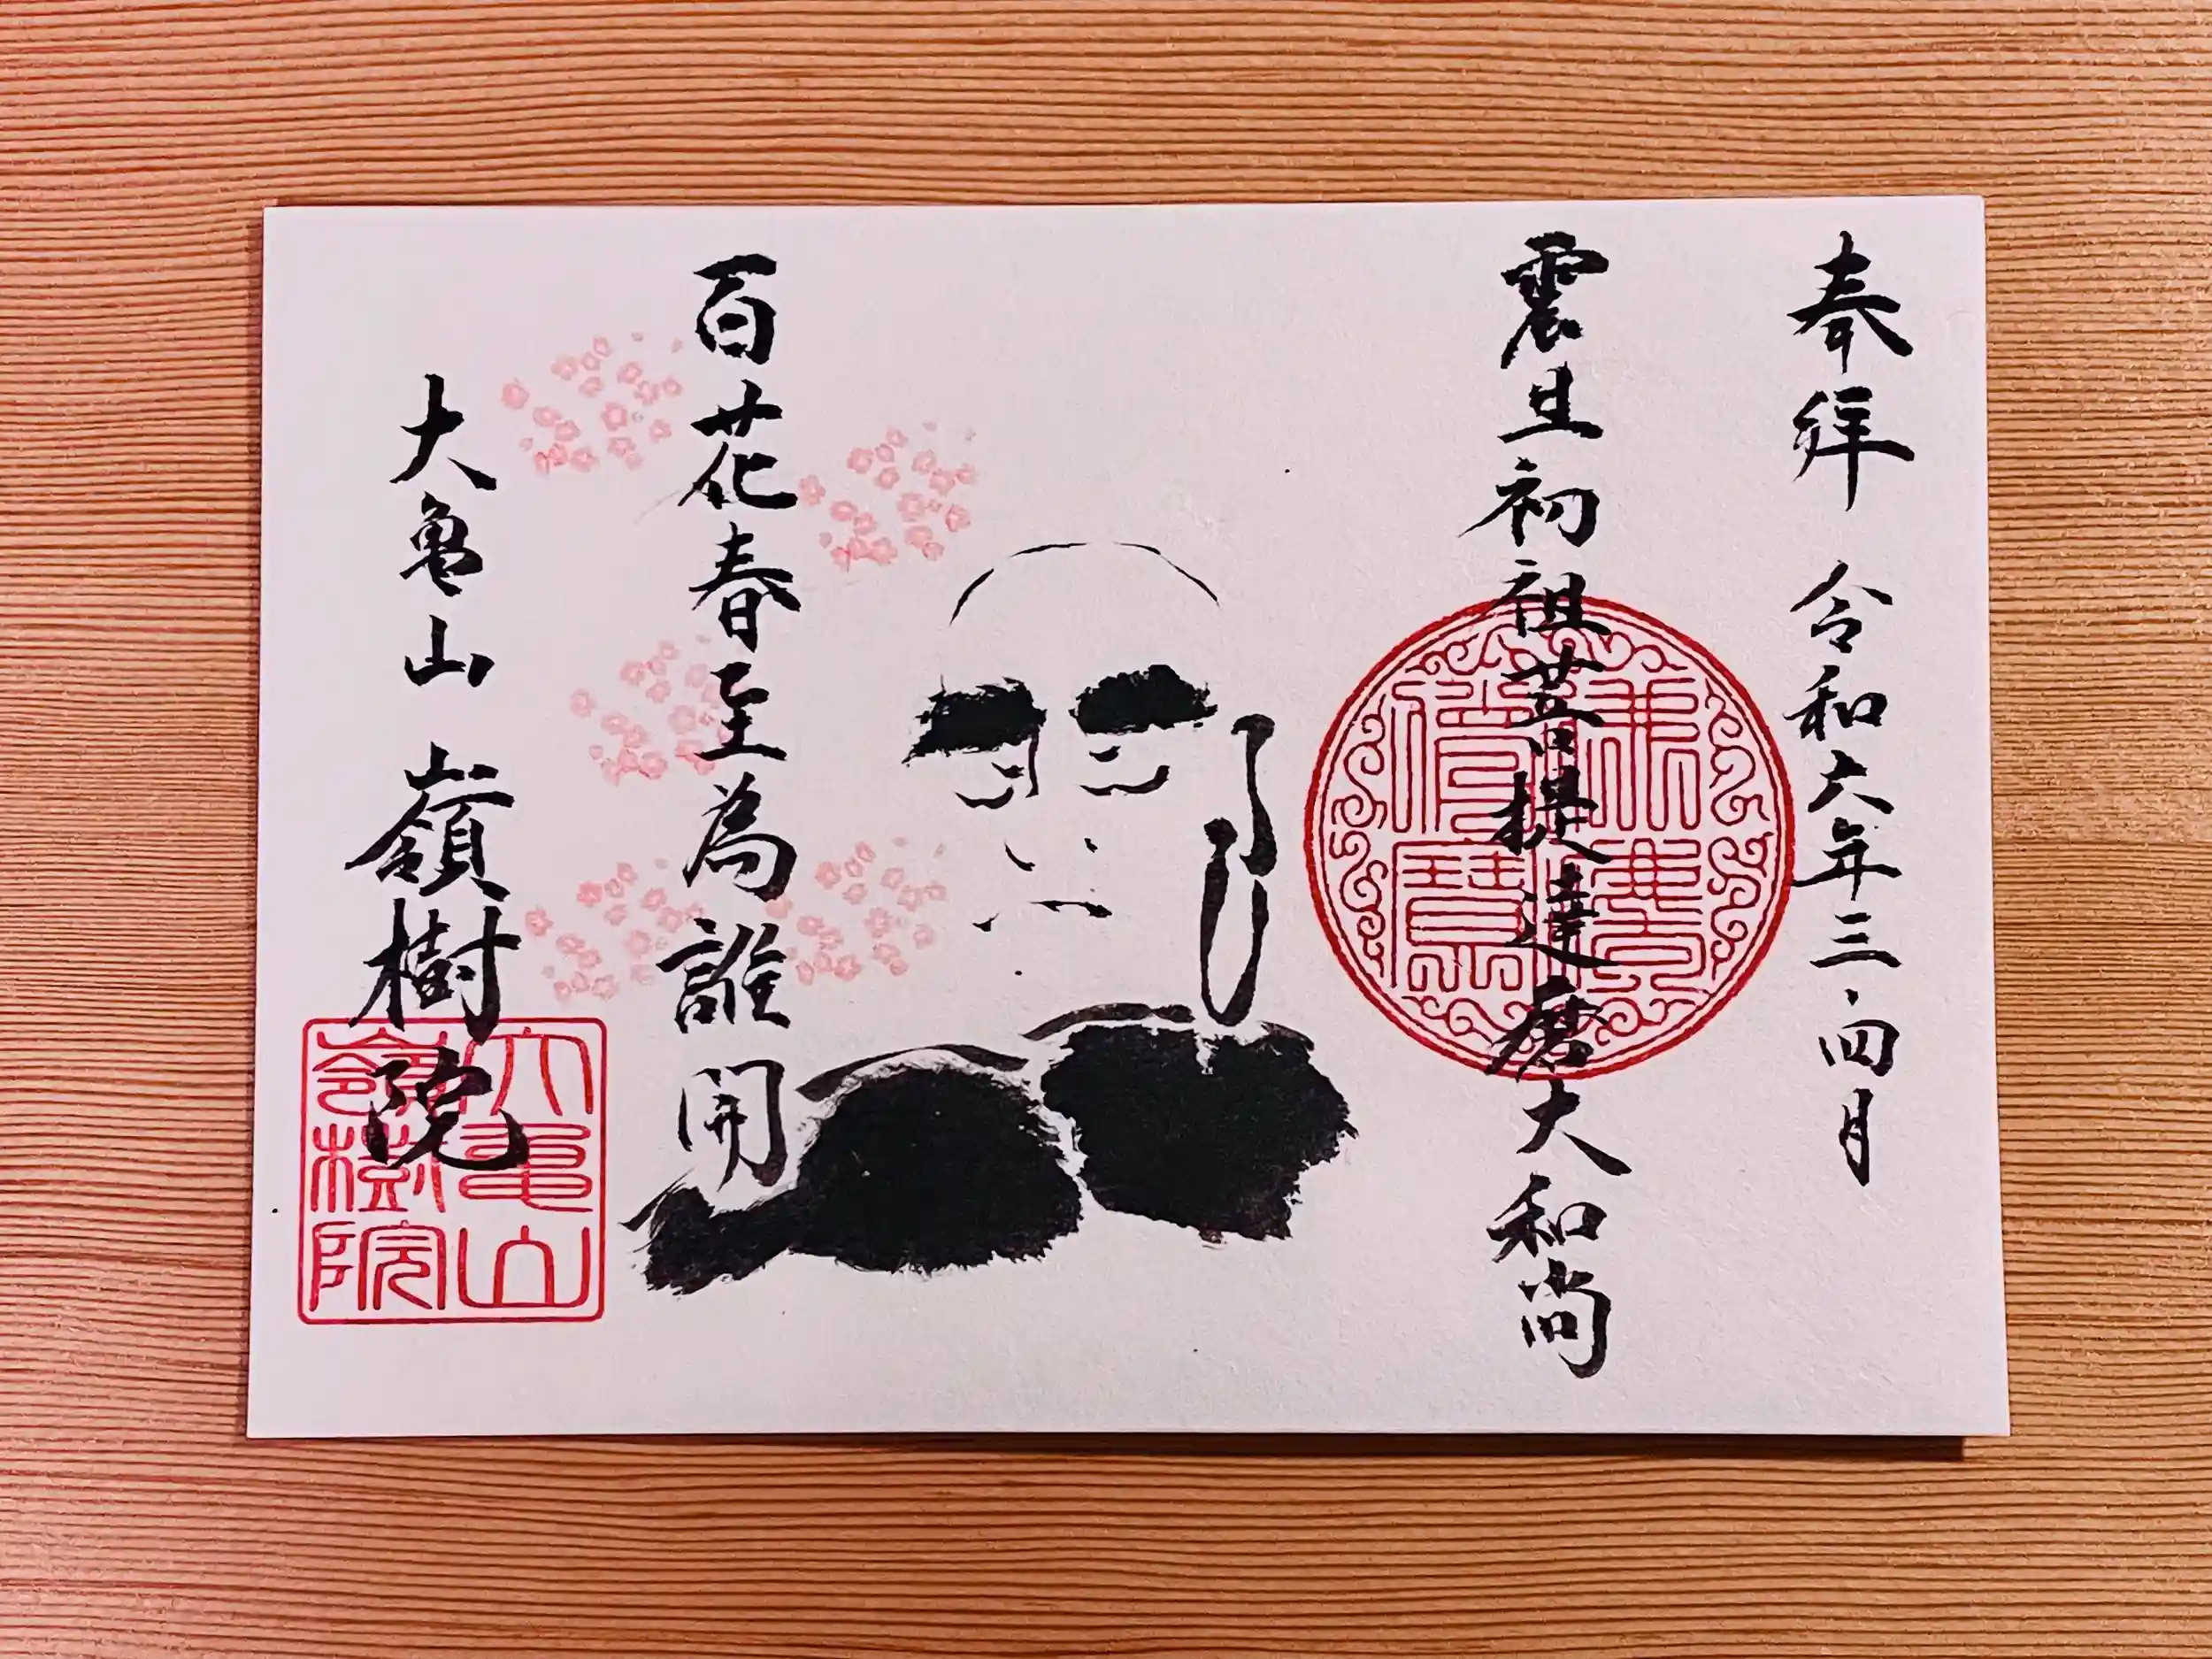 奉拝 令和六年三・四月
震旦初祖菩提達磨大和尚
百花春至為誰開
大亀山 嶺樹院
大亀山
嶺樹院